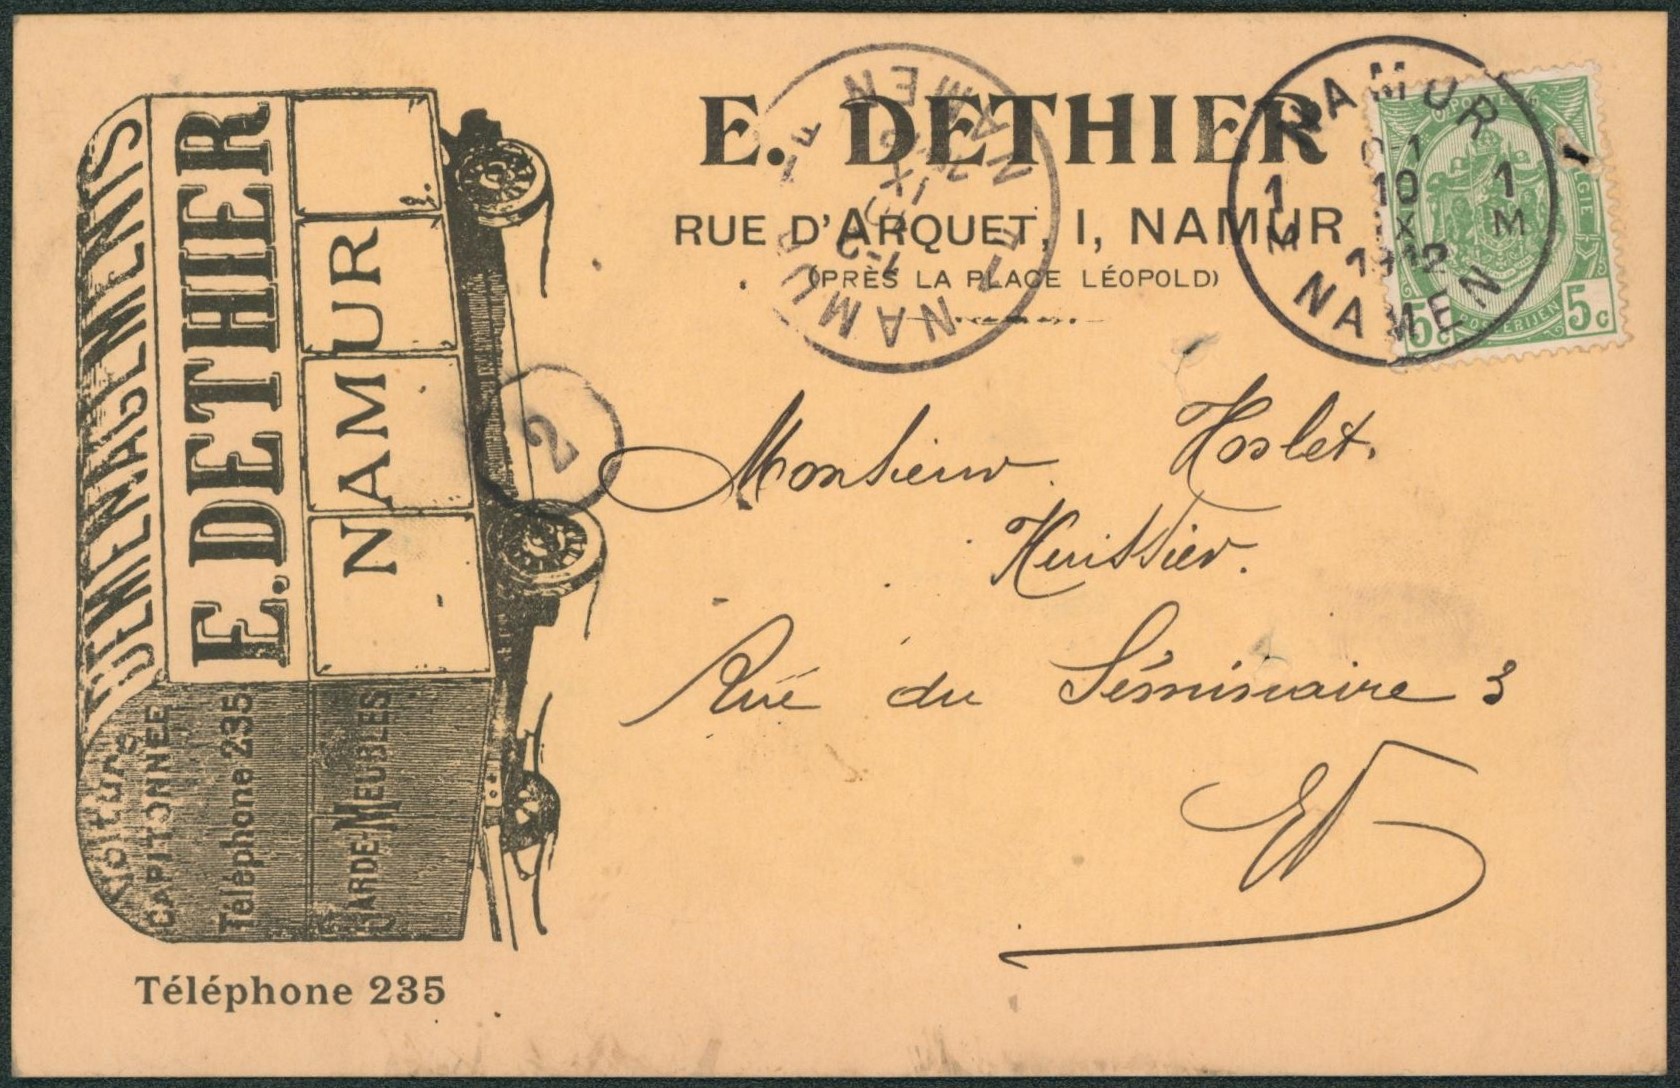 E. DETHIER
RUE D'ARQUET, 1, NAMUR
(PRÈS LA PLACE LÉOPOLD)
DEMENAGEMENTS
E. DETHIER
NAMUR
VOITURE
CAPITONNEE
Téléphone 235
GARDE-MEUBLES
Téléphone 235
NAMUR
1 M
10
IX
1912
1 M
NAMEN
NAMUR
IX
NAMEN
2
POSTERIJEN
5c
5c
Monsieur Hoslet.
Huissier.
Rue du Séminaire 3
EV